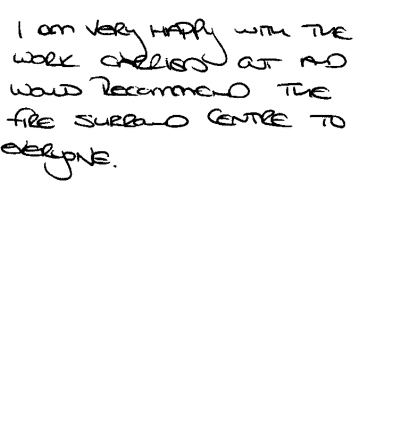 I am very happy with the
work carried out and
would recommend the
fire surround centre to
everyone.